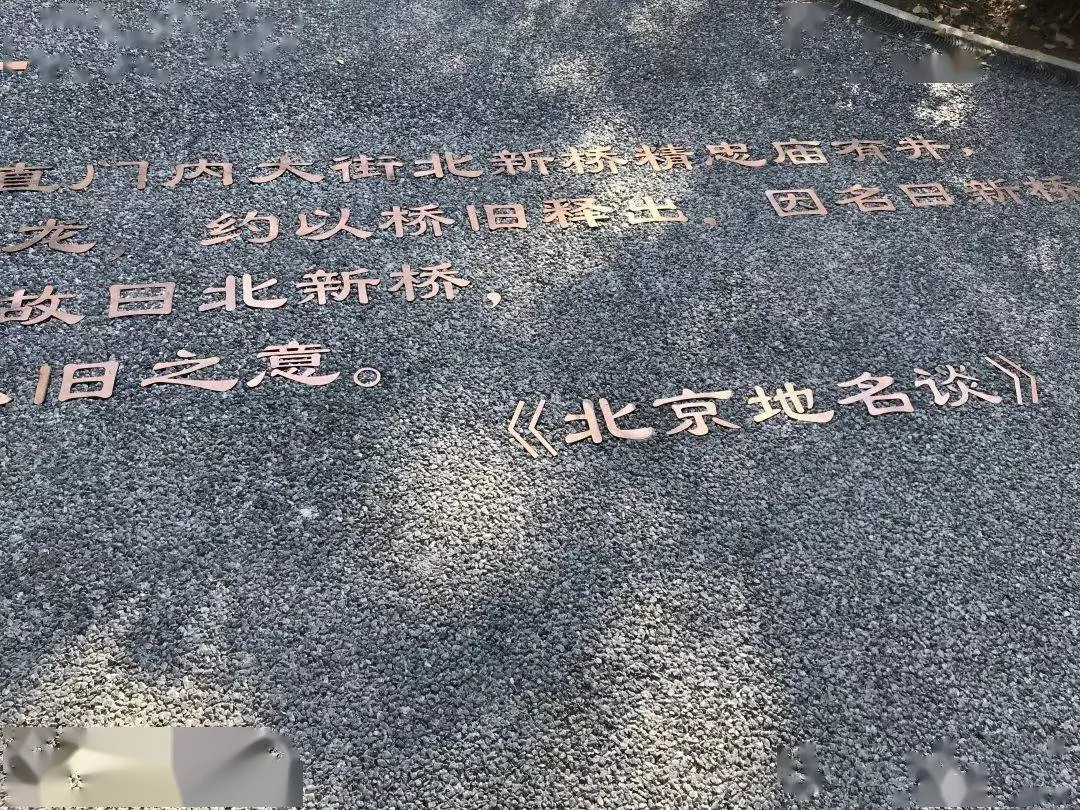 直门内大街北新桥精忠庙有井，
龙，约以桥旧释出，因名曰新桥
故曰北新桥，
旧之意。
《北京地名谈》